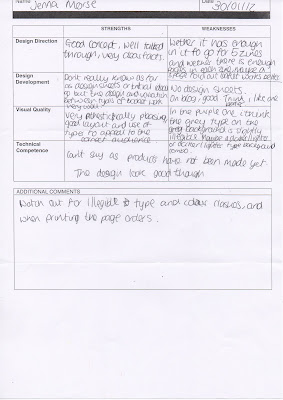 Name Jema Morse Date 30/01/12
STRENGTHS WEAKNESSES
Design Direction
Good concept, well talked
through, very clear facts.
Wether it has enough
in it to go for 5 zines
and wether there is enough
pages in each one maybe a
fold out works better
Design
Development
Don't really know as far
as design sheets or initial ideas
go but the design and variation
between types of work
very good!
No design sheets.
on blog, good I think, I like one
Visual Quality
Very asthetically pleasing,
good layout and use of
type to appeal to the
correct audience
In the purple one, I think
the grey type on the
grey background is slightly
illegible maybe a lighter
or darker type background
combo.
Technical
Competence
Can't say as products have not been made yet.
The design look good though
ADDITIONAL COMMENTS
Watch out for illegible type and colour clashes, and
when printing the page orders.